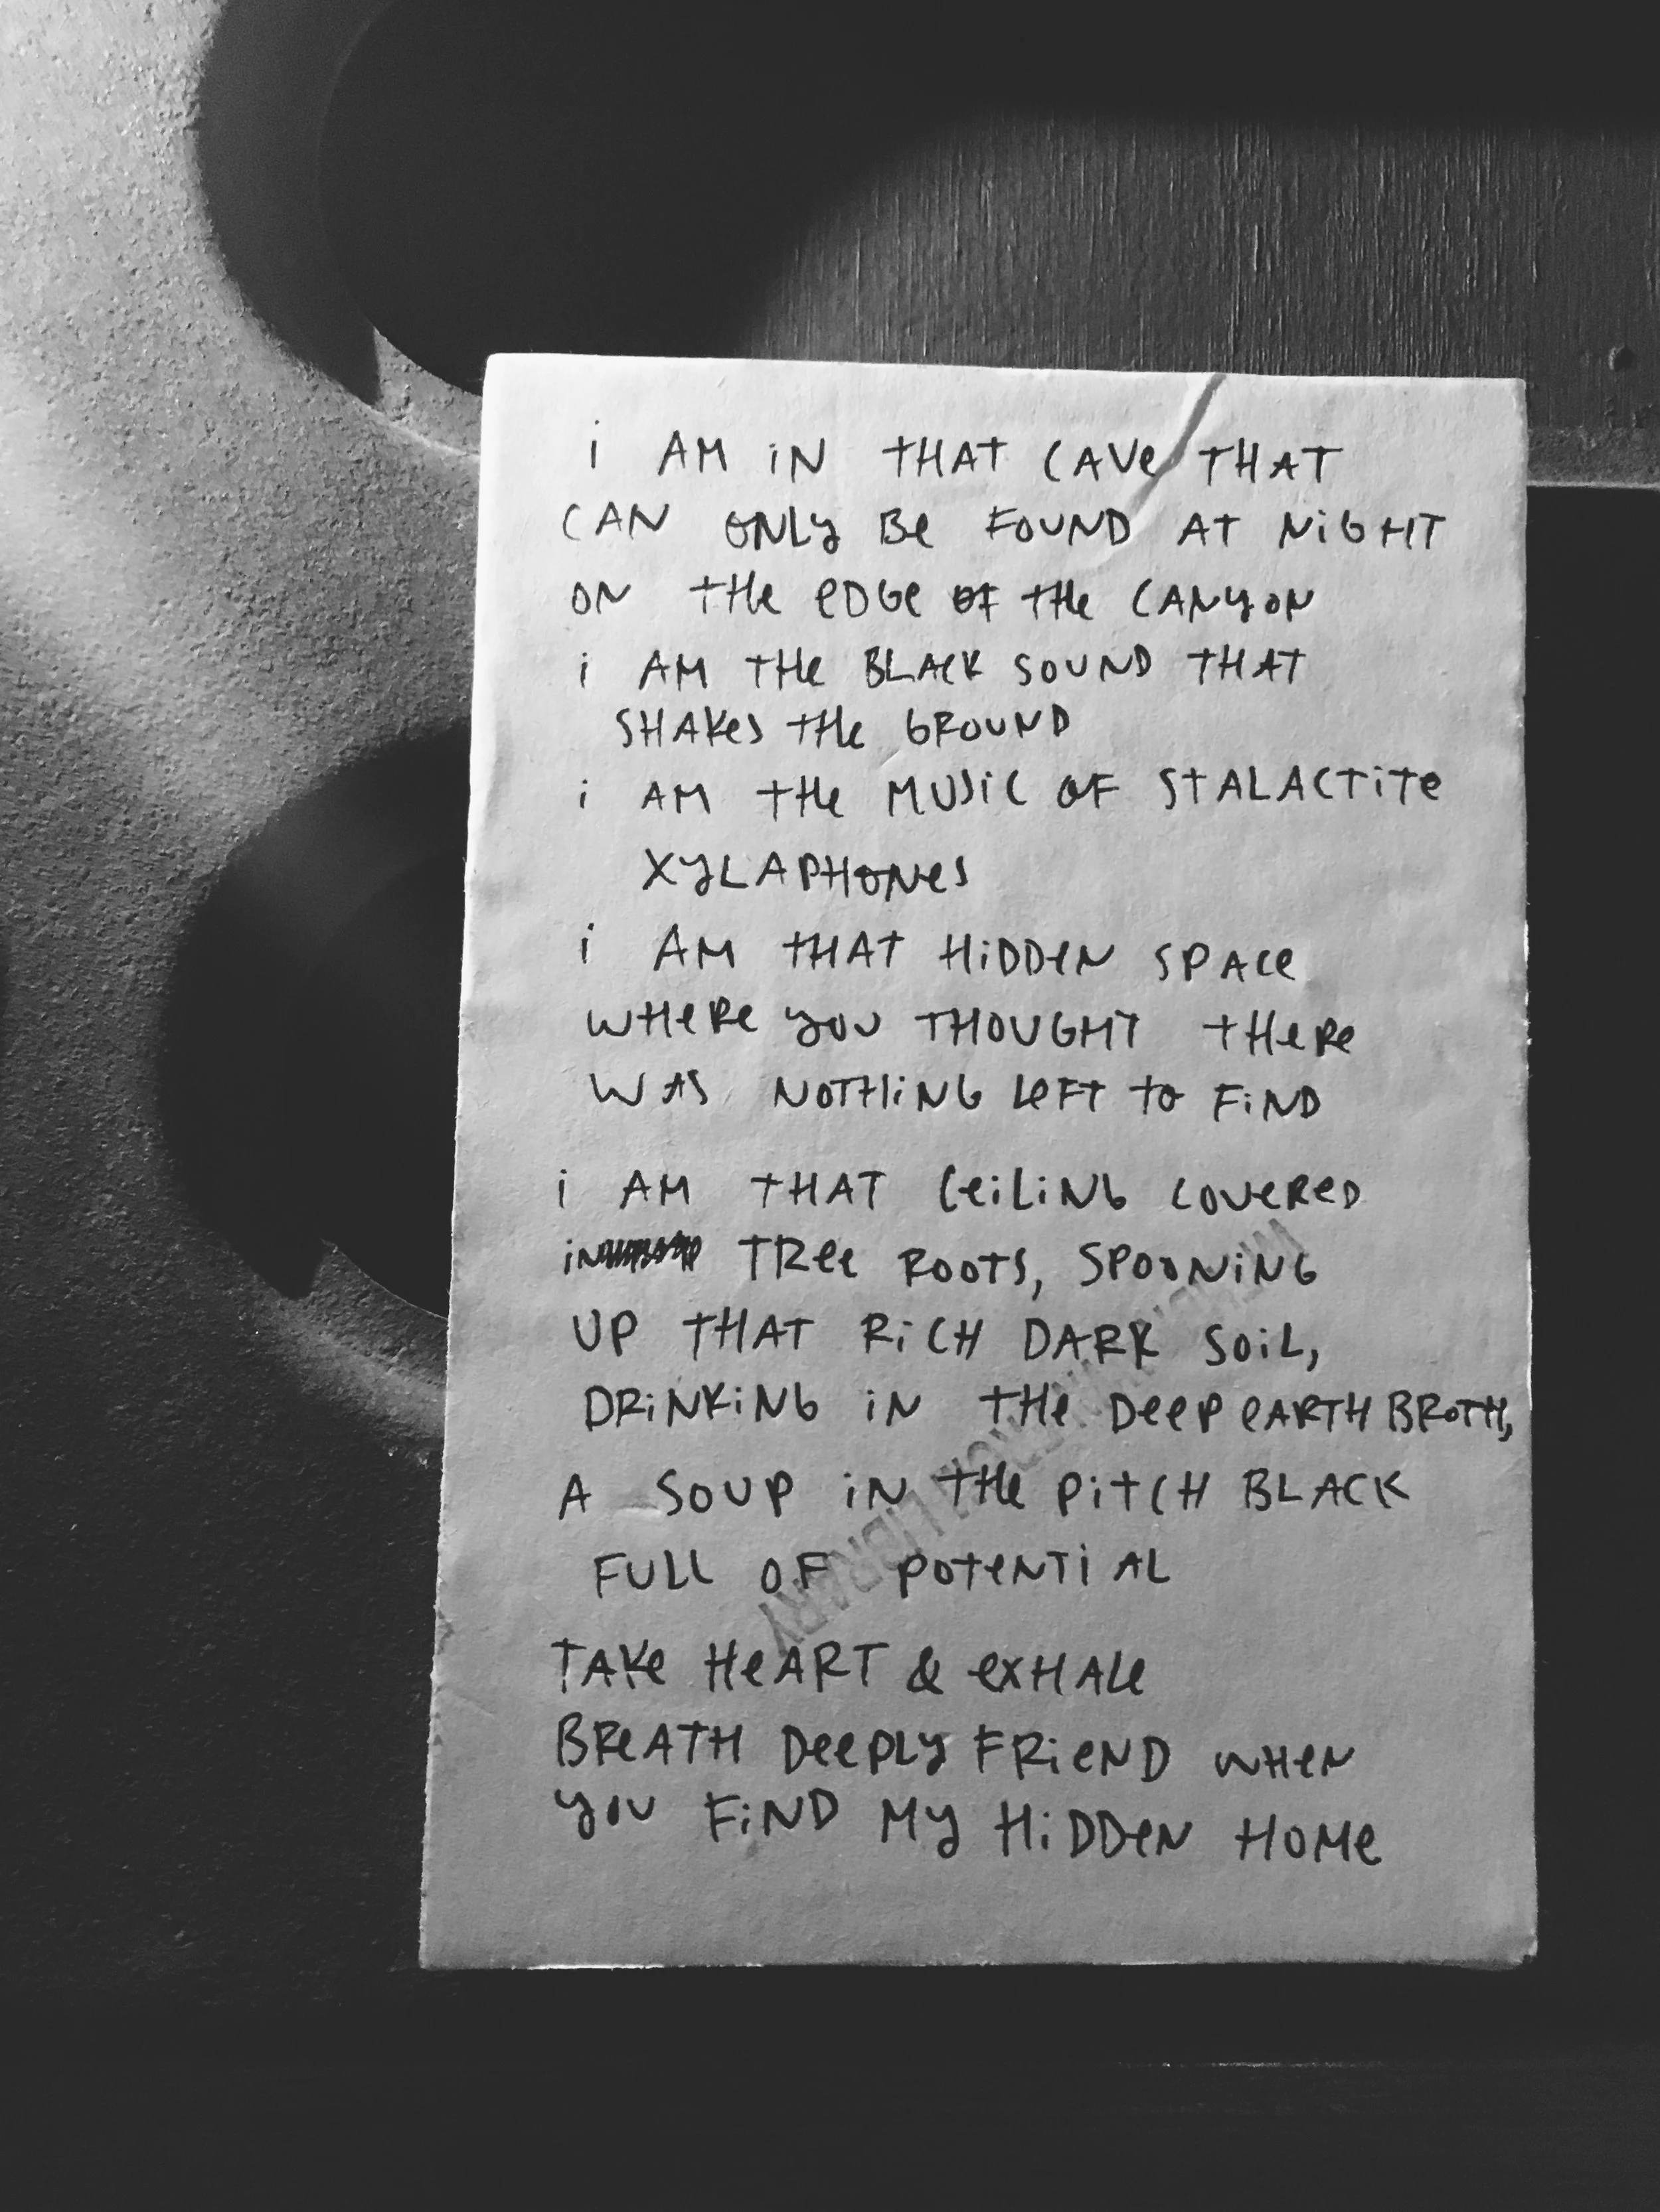 i AM iN THAT CAVe THAT
CAN ONLY Be FOUND AT NiGHT
ON THe eDGe OF THe CANYON
i AM THe BLACK SOUND THAT
SHAKeS THe GROUND
i AM THe MUSiC OF STALACTiTe
XYLAPHONeS
i AM THAT HiDDeN SPACe
WHeRe YOU THOUGHT THeRe
WAS NOTHiNG LeFT TO FiND
i AM THAT CeiLiNG COVeReD
iN TRee ROOTS, SPOONiNG
UP THAT RiCH DARK SOiL,
DRiNKiNG iN THe DeeP eARTH BROTH,
A SOUP iN THe PiTCH BLACK
FULL OF POTeNTiAL
TAKe HeART & eXHALe
BReATH DeePLY FRieND WHeN
YOU FiND MY HiDDeN HOMe
LIBRARY